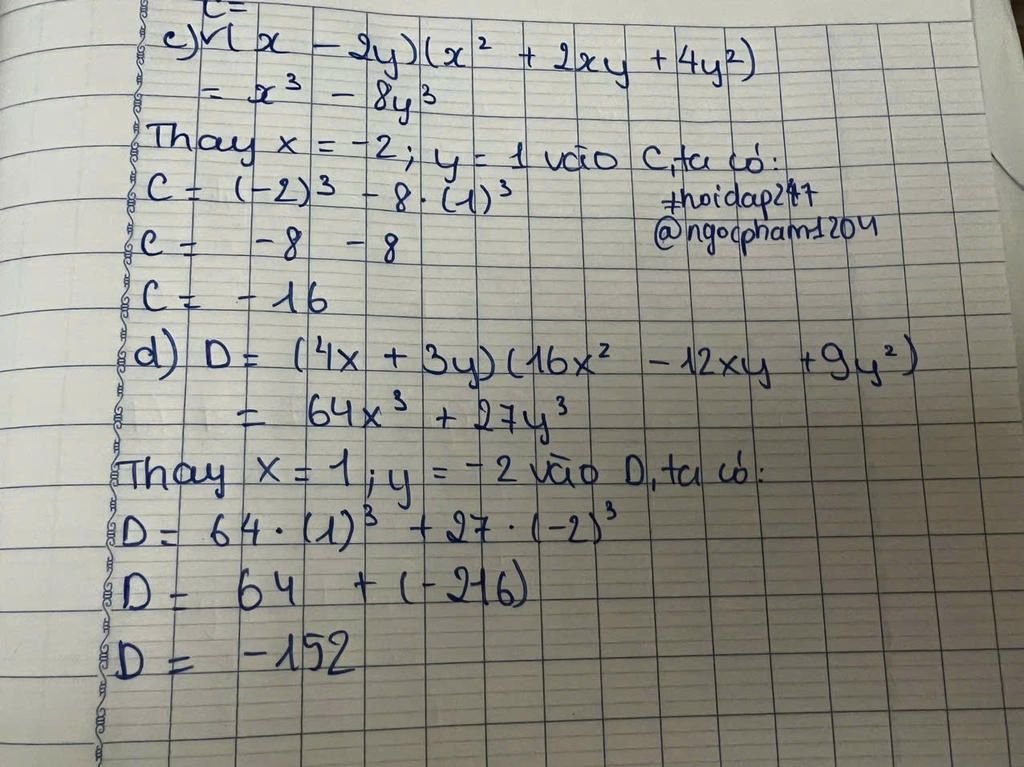 C=
c) (x - 2y)(x² + 2xy + 4y²)
= x³ - 8y³
Thay x = -2; y = 1 vào C, ta có:
C = (-2)³ - 8 · (1)³
#hoidap247
@ngocpham1204
C = -8 - 8
C = -16
d) D = (4x + 3y)(16x² - 12xy + 9y²)
= 64x³ + 27y³
Thay x = 1; y = -2 vào D, ta có:
D = 64 · (1)³ + 27 · (-2)³
D = 64 + (-216)
D = -152